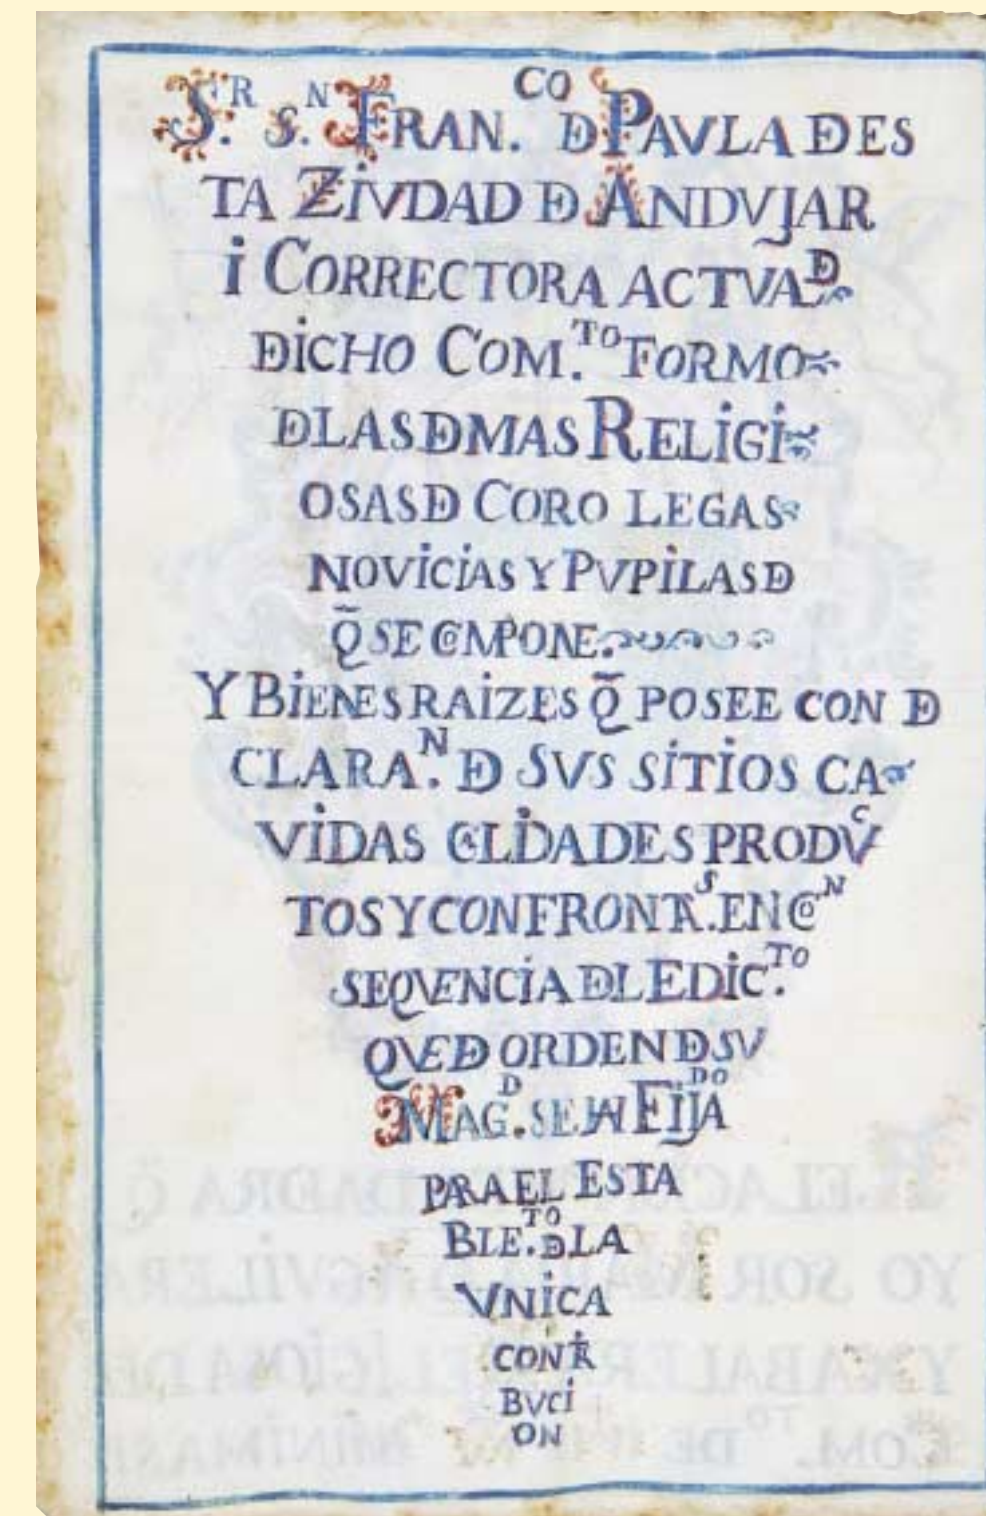 S.R S.N FRAN.CO Đ PAVLA ĐES
TA ZiVDAD Đ ANDVJAR
i CORRECTORA ACTVA Đ
ĐiCHO COM.TO FORMO
ĐLAS ĐMAS RELiGi
OSAS Đ CORO LEGAS
NOViCiAS Y PVPiLAS Đ
Q̃ SE COMPONE.
Y BiENES RAiZES Q̃ POSEE CON Đ
CLARA.N Đ SVS SiTiOS CA
ViDAS CALiDADES PRODVC
TOS Y CONFRONTA.S EN CON
SEQVENCiA ĐL EDiC.TO
QVE Đ ORDEN Đ SV
MAG.D SE HA FiJADO
PARA EL ESTA
BLE.TO Đ LA
VNiCA
CONTRi
BVCi
ON